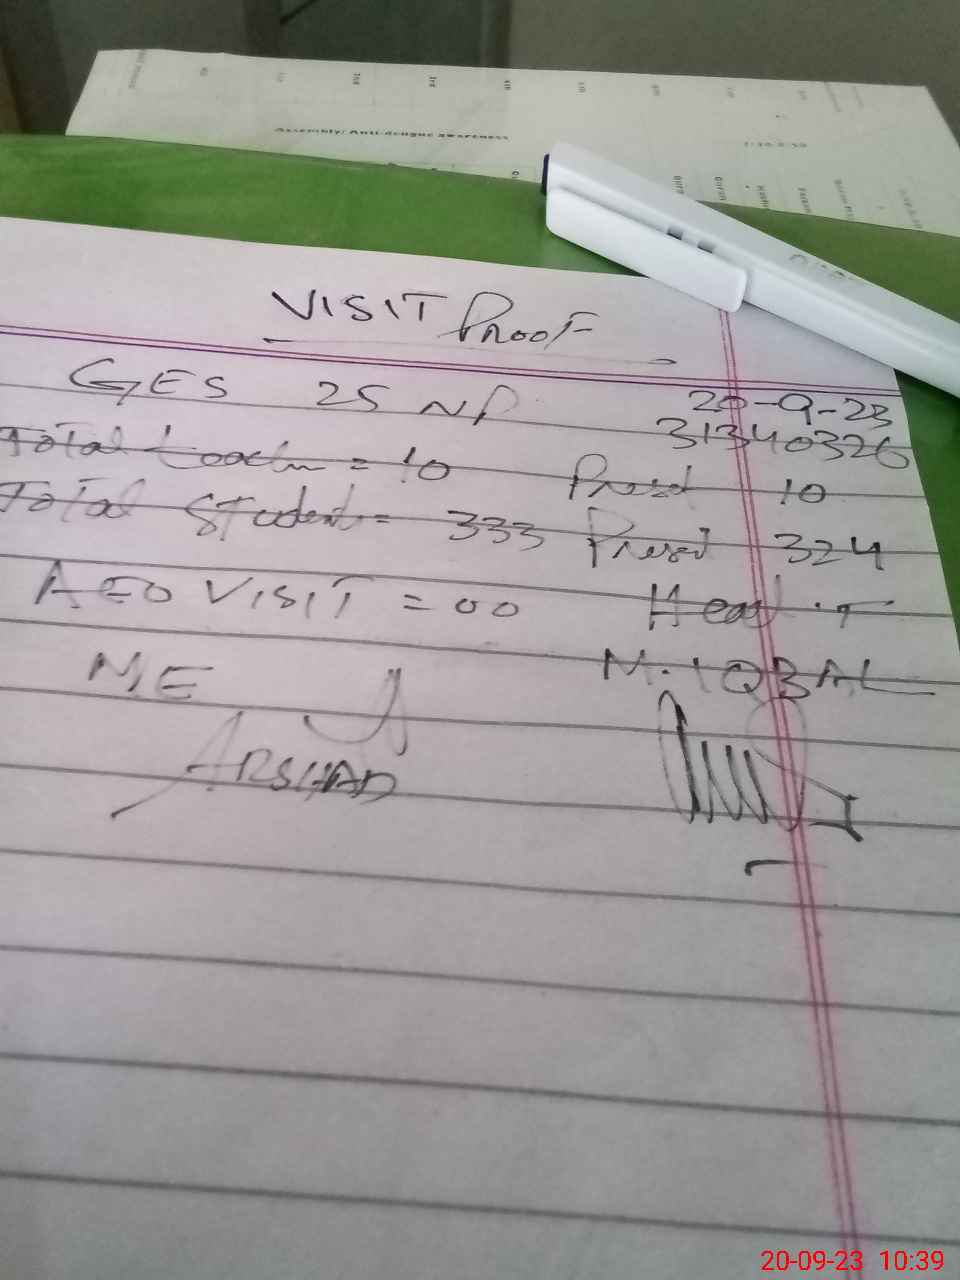 Assembly/Anti-dengue awareness
VISIT PROOF
GES 25 NP 20-9-23
31340326
Total teacher = 10 Present 10
Total Student = 333 Present 324
AEO VISIT = 00 Head .T
N,E M.IQBAL
ARSHAD
20-09-23 10:39